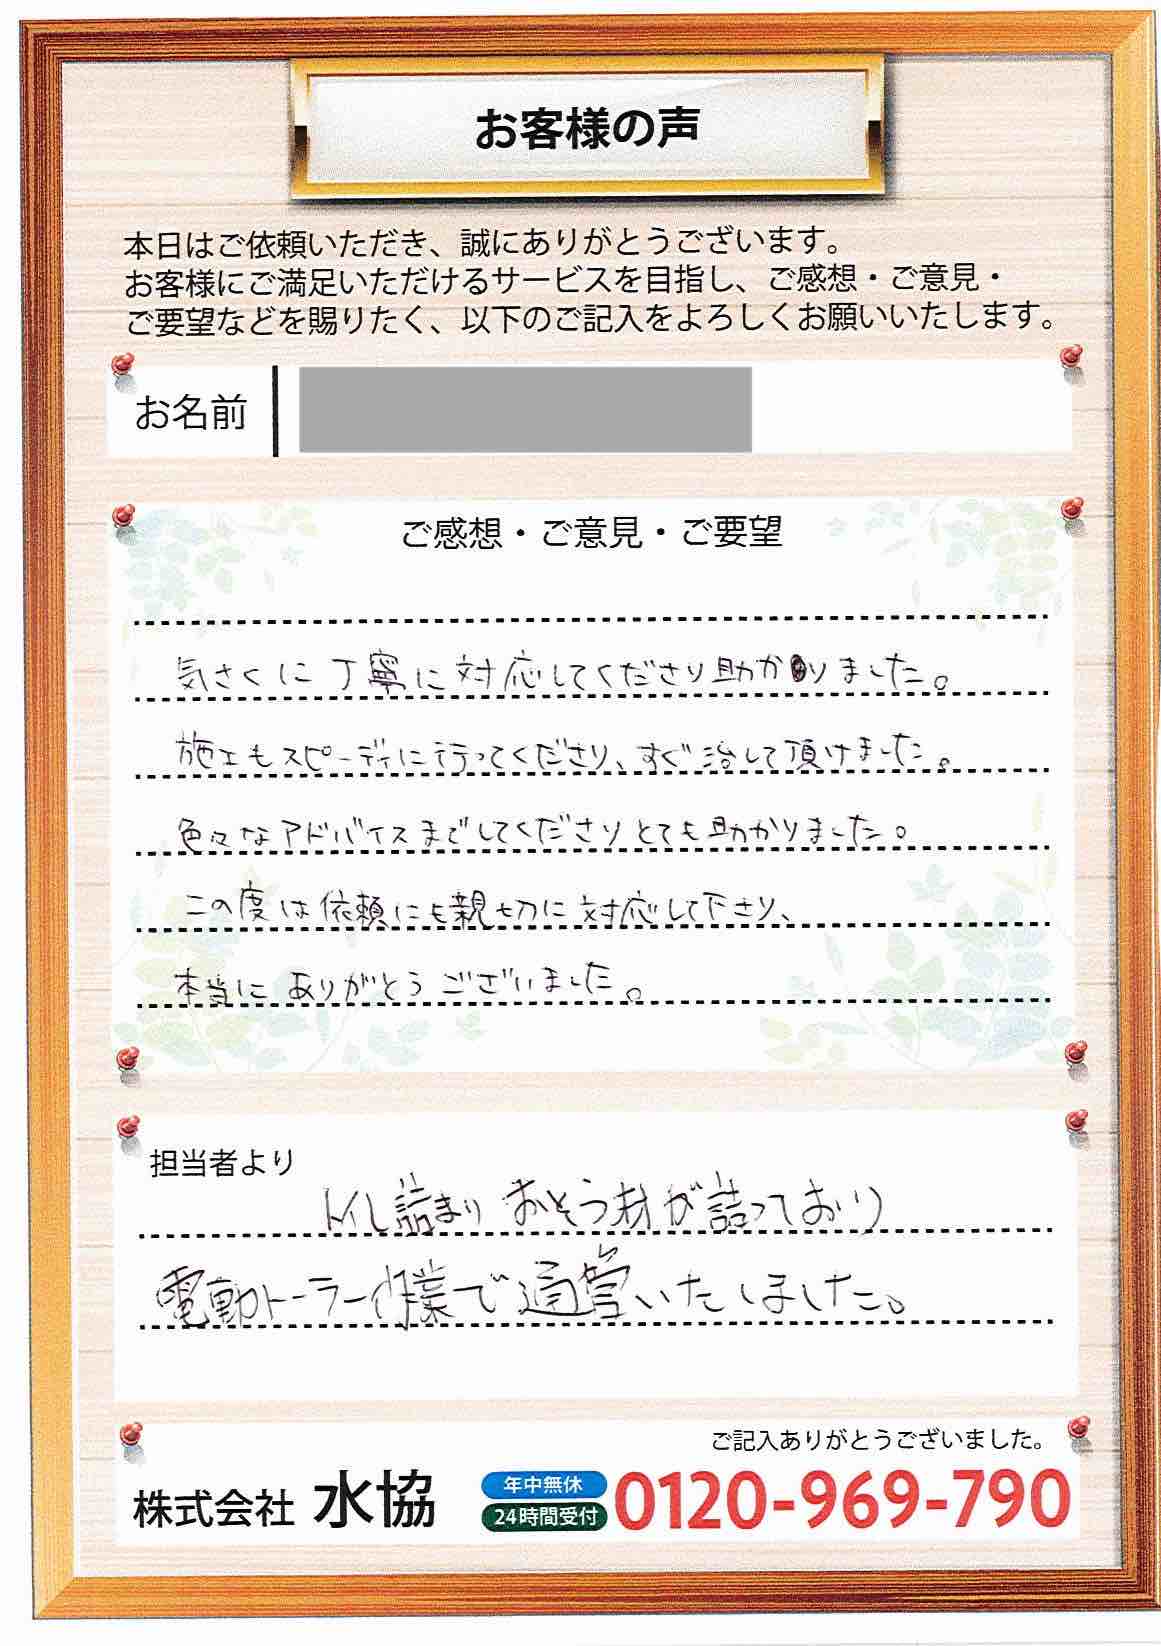 お客様の声
本日はご依頼いただき、誠にありがとうございます。
お客様にご満足いただけるサービスを目指し、ご感想・ご意見・
ご要望などを賜りたく、以下のご記入をよろしくお願いいたします。
お名前
ご感想・ご意見・ご要望
気さくに丁寧に対応してくださり助かりました。
施工もスピーディに行ってくださり、すぐ治して頂けました。
色々なアドバイスまでしてくださりとても助かりました。
この度は依頼にも親切に対応して下さり、
本当にありがとうございました。
担当者より
トイレ詰まり おそう材が詰っており
電動トーラー作業で通管いたしました。
ご記入ありがとうございました。
株式会社 水協 年中無休 24時間受付 0120-969-790